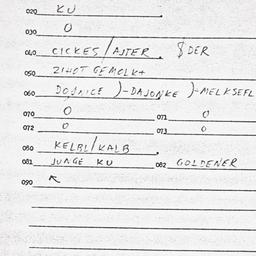 020 KU
030 O
040 CICKES/AJTER. $ DER
050 ZIHOT GEMOLK+
060 DOJNICE )-DAJONKE )-MELKSEFL
070 O 071 O
072 O 073 O
080 KELBL/KALB
081 JUNGE KU 082 GOLDENER
090